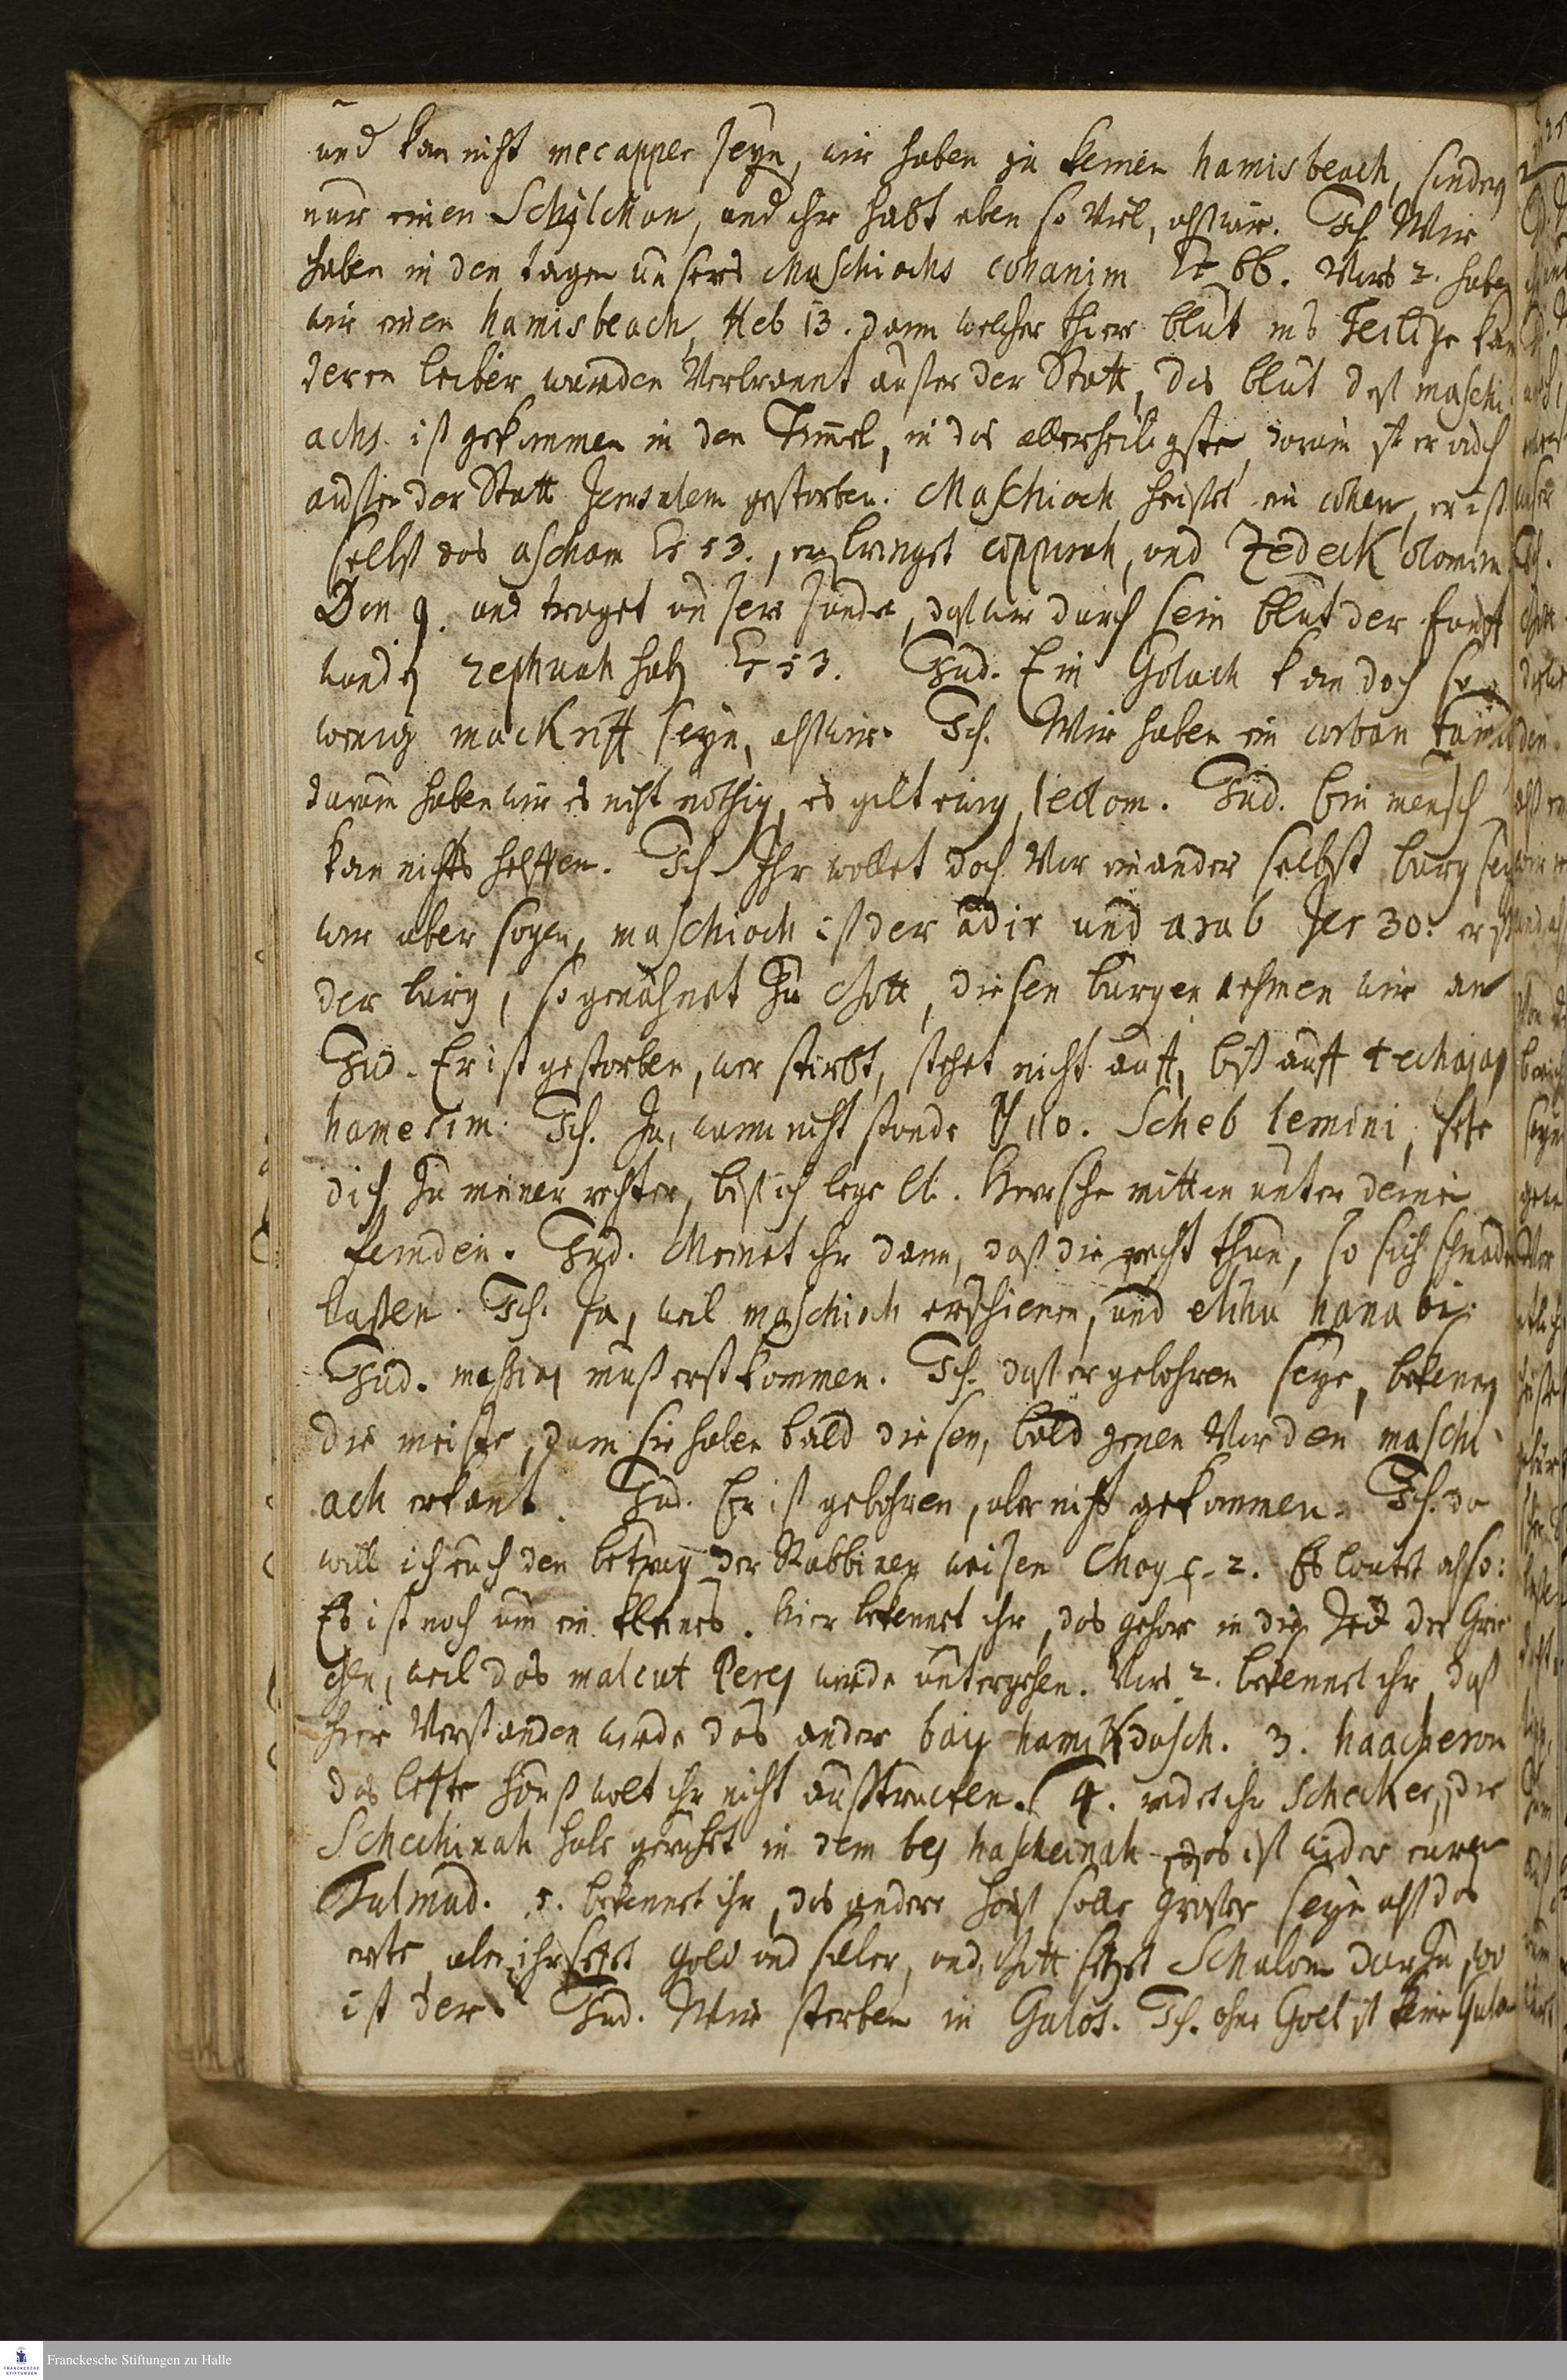 und kan nicht mecapper seyn, wir haben ja keinen hamisbeach, sondern
nur einen Schilchan, und ihr habt eben so viel, alß wir. Ich. Wir
haben in den tagen unsers Maschiachs cohanim Es 66. Vors 2. haben
wir einen hamisbeach, Heb 13. dann welcher thier blut ins Heilige kam
deren leiber wurden verbrannt außer der Statt, das blut deß maschi
achs ist gekommen in den Himel, in das allerheiligste, darum ist er auch
außer der Statt Jerusalem gestorben. Maschiach heißet ein cohen, er ist
selbst das ascham Es 53., er bringet cappurah, und Zedeck olomim
Dan 9. und traget unsere sunde, daß wir durch sein blut der
wunden rephuah haben Es 53. Jud. Ein Golach kan doch so
wenig mackriff seyn, alß wir. Ich. Wir haben ein corban tamid
darum haben wir es nicht nöthig, es gilt ewig, leolom. Jud. Ein mensch
kan nichts helffen. Ich. Ihr wollet doch vor einander selbst burg seyn
wir aber sagen, maschiach ist der adir und arab Jer 30. er ist
der burg, so genähnet zu Gott, diesen burgen nehmen wir an
Jud. Er ist gestorben, wer stirbt, stehet nicht auff, biß auff techajas
hamesim. Ich. Ja, wann nicht stonde ψ 110. Scheb lemini, setze
dich zu meiner rechten, biß ich lege etc. Herrsche mitten unter deinen
feinden. Jud. Meinet ihr dann, daß die recht thun, so sich schmaden
laßen. Ich. Ja, weil maschiach erschienen, und elihu hanabi.
Jud. muß erst kommen. Ich. daß er gebohren seye, bekennen
die meiste, dann sie haben bald diesen, bald jenen vor den maschi
ach erkant. Jud. Er ist gebohren, aber nicht gekommen. Ich. da
will ich euch den betrug der Rabbinen weisen Chag c. 2. Es lautet also:
Es ist noch um ein kleines. Hier bekennet ihr, das gehöre in die Zeit der Grie
chen, weil das malcut Peres werde untergehen. Vors 2. bekennet ihr, daß
hier verstanden werde das ander bais hamikdasch. 3. haacheron
das letzte hauß wolt ihr nicht außtrucken. 4. redet ihr Schecker, die
Schechinah habe geruhet in dem das ist wider euren
Talmud. 5. bekennet ihr, das andere hauß solle großer seyn alß das
erste, aber ihr setzet gold und silber, und Gott setzet Schalom darzu, wo
ist der. Jud. Wir sterben in Galos. Ich. ohne Goel ist keine
Franckesche Stiftungen zu Halle